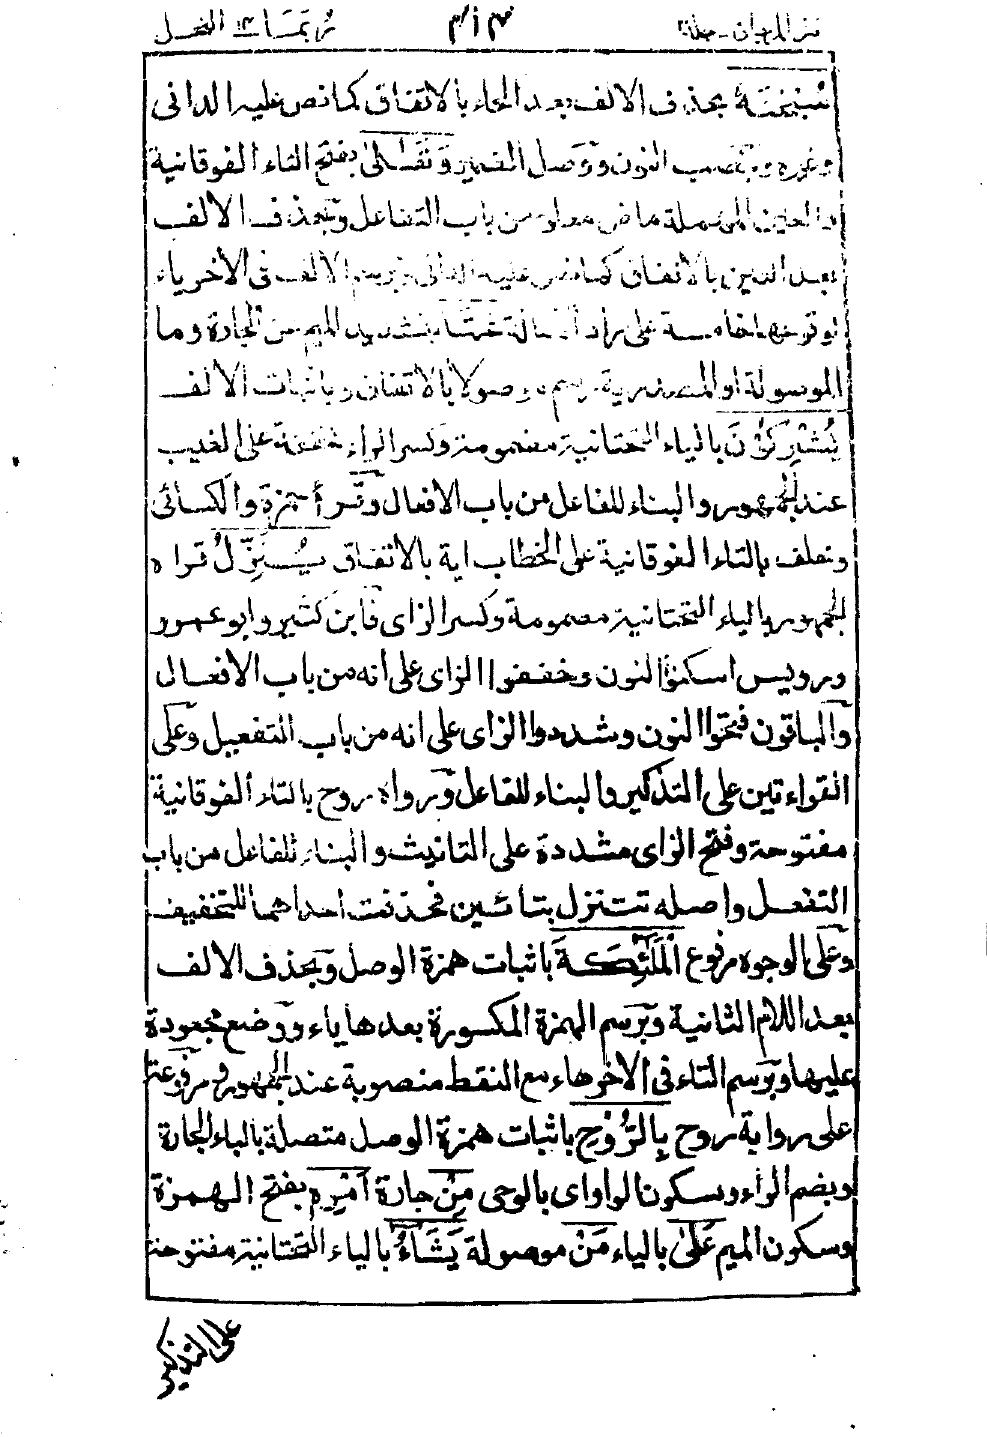 نثر المرجان - جلد ربما ١٤ النحل
سُبْحٰنَهٗ بحذف الالف بعد الحاء بالاتفاق كما نص عليه الدانى
وغيره وبنصب النون ووصل الضمير وَتَعٰلىٰ بفتح التاء الفوقانية
والعين المهملة ماض معلوم من باب التفاعل وبحذف الالف
بعد العين بالاتفاق كما نص عليه الدانى وبرسم الالف فى الاخر ياء
لوقوعها خامسة على مراد الامالة عَمَّا بتشديد الميم من الجارة وما
الموصولة او المصدرية رسم موصولا بالاتفاق وباثبات الالف
يُشْرِكُوْنَ بالياء التحتانية مضمومة وكسر الراء مخففة على الغيب
عند الجمهور والبناء للفاعل من باب الافعال وقرأ حمزة والكسائى
وخلف بالتاء الفوقانية على الخطاب اية بالاتفاق يُنَزِّلُ قراه
الجمهور بالياء التحتانية مضمومة وكسر الزاى فابن كثير وابو عمرو
ورويس اسكنوا النون وخففوا الزاى على أنه من باب الافعال
والباقون فتحوا النون وشددوا الزاى على انه من باب التفعيل وعلى
القراءتين على التذكير والبناء للفاعل ورواه روح بالتاء الفوقانية
مفتوحة وفتح الزاى مشددة على التانيث والبناء للفاعل من باب
التفعل واصله تتنزل بتائين فحذفت احداهما للتخفيف
وعلى الوجوه مرفوع الْمَلٰٓئِكَةَ باثبات همزة الوصل وبحذف الالف
بعد اللام الثانية وبرسم الهمزة المكسورة بعدها ياء ووضع مجعودة
عليها وبرسم التاء فى الاخر هاء مع النقط منصوبة عند الجمهور ومرفوعة
على رواية روح بِالرُّوْحِ باثبات همزة الوصل متصلة بالباء الجارة
وبضم الراء وسكون الواو اى بالوحى مِنْ جارة اَمْرِهٖ بفتح الهمزة
وسكون الميم عَلىٰ بالياء مَنْ موصولة يَّشَآءُ بالياء التحتانية مفتوحة
على التذكير